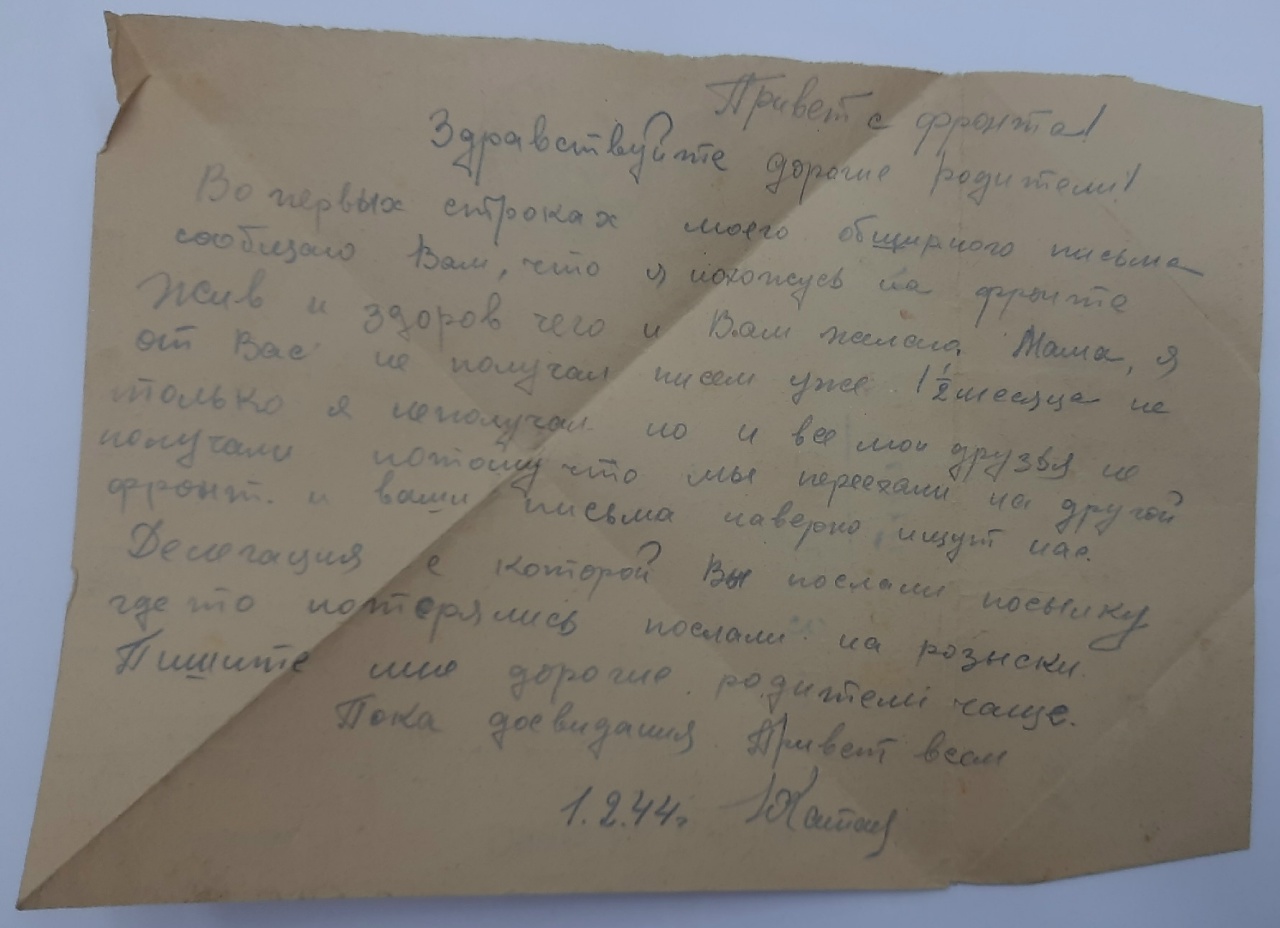 Привет с фронта!
Здравствуйте дорогие родители!
Во первых строках моего обширного письма
сообщаю Вам, что я нохожусь на фронте
Жив и здоров чего и Вам желаю. Мама, я
от Вас не получал писем уже 1 1/2 месяца не
только я неполучал но и все мои друзья не
получали потому что мы переехали на другой
фронт. и ваши письма наверно ищут нас.
Делегация с которой Вы послали посылку
где то потерялись послали на розыски.
Пишите мне дорогие родители чаще.
Пока досвидания Привет всем
1.2.44г